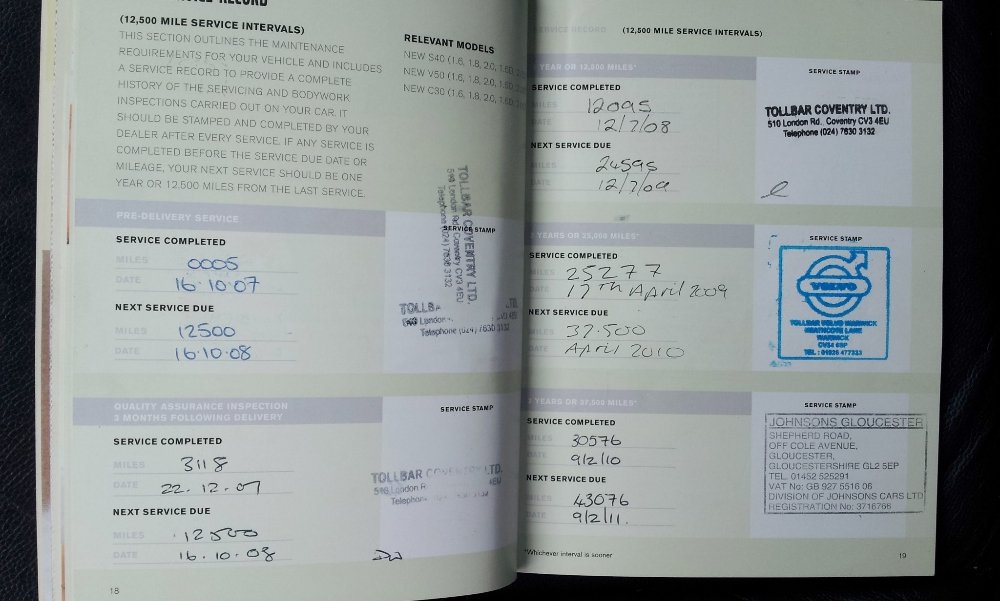 RECORD
(12,500 MILE SERVICE INTERVALS)
THIS SECTION OUTLINES THE MAINTENANCE
REQUIREMENTS FOR YOUR VEHICLE AND INCLUDES
A SERVICE RECORD TO PROVIDE A COMPLETE
HISTORY OF THE SERVICING AND BODYWORK
INSPECTIONS CARRIED OUT ON YOUR CAR. IT
SHOULD BE STAMPED AND COMPLETED BY YOUR
DEALER AFTER EVERY SERVICE. IF ANY SERVICE IS
COMPLETED BEFORE THE SERVICE DUE DATE OR
MILEAGE, YOUR NEXT SERVICE SHOULD BE ONE
YEAR OR 12,500 MILES FROM THE LAST SERVICE.
RELEVANT MODELS
NEW S40 (1.6, 1.8, 2.0, 1.6D,
NEW V50 (1.6, 1.8, 2.0, 1.6D,
NEW C30 (1.6, 1.8, 2.0, 1.6D,
PRE-DELIVERY SERVICE
SERVICE STAMP
SERVICE COMPLETED
MILES 0005
DATE 16.10.07
NEXT SERVICE DUE
MILES 12500
DATE 16.10.08
TOLLBAR COVENTRY LTD.
510 London Rd. Coventry CV3 4EU
Telephone (024) 7630 3132
London
Telephone (024) 7630 3132
QUALITY ASSURANCE INSPECTION
3 MONTHS FOLLOWING DELIVERY
SERVICE STAMP
SERVICE COMPLETED
MILES 3118
DATE 22.12.07
NEXT SERVICE DUE
MILES 12500
DATE 16.10.08
TOLLBAR COVENTRY LTD.
London 4EU
Telephone
18
SERVICE RECORD (12,500 MILE SERVICE INTERVALS)
YEAR OR 12,500 MILES*
SERVICE STAMP
SERVICE COMPLETED
MILES 12095
DATE 12/7/08
NEXT SERVICE DUE
MILES 24595
DATE 12/7/09
TOLLBAR COVENTRY LTD.
510 London Rd. Coventry CV3 4EU
Telephone (024) 7630 3132
YEARS OR 25,000 MILES*
SERVICE STAMP
SERVICE COMPLETED
MILES 25277
17th April 2009
NEXT SERVICE DUE
MILES 37.500
DATE April 2010
VOLVO
TOLLBAR VOLVO WARWICK
HEATHCOTE LANE
WARWICK
CV34 6SP
TEL: 01926 477333
3 YEARS OR 37,500 MILES*
SERVICE STAMP
SERVICE COMPLETED
MILES 30576
DATE 9/2/10
NEXT SERVICE DUE
MILES 43076
DATE 9/2/11.
JOHNSONS GLOUCESTER
SHEPHERD ROAD,
OFF COLE AVENUE,
GLOUCESTER,
GLOUCESTERSHIRE GL2 5EP
TEL. 01452 525291
VAT No: GB 927 5516 06
DIVISION OF JOHNSONS CARS LTD
REGISTRATION No: 3716766
*Whichever interval is sooner
19